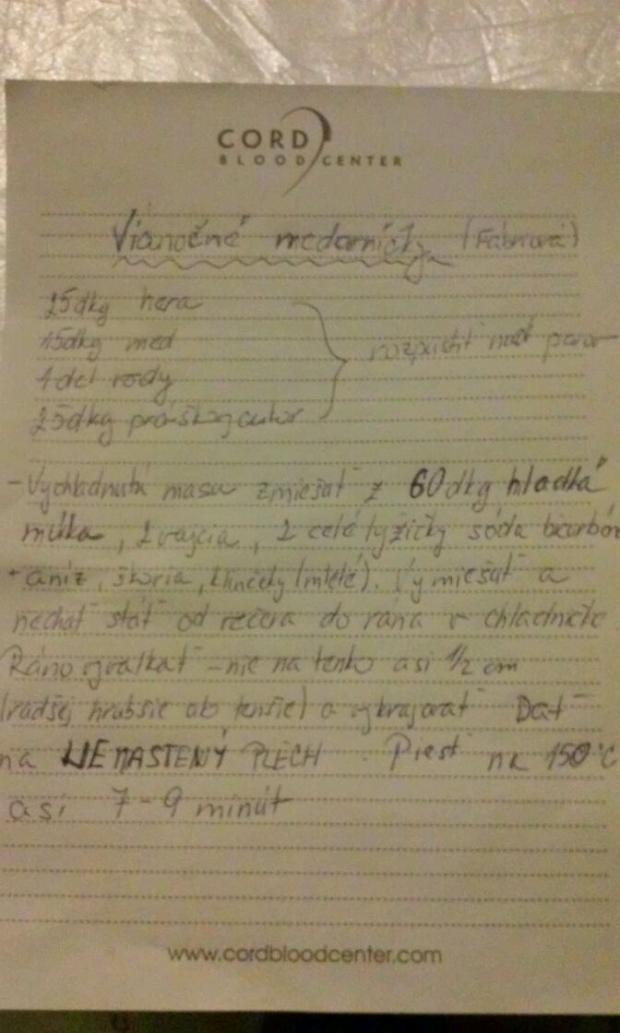 CORD
BLOOD CENTER
Vianočné medovníčky (Fabriová)
25dkg hera
15dkg med
1 dcl vody
25dkg práškový cukor
rozpustiť nad parou
- Vychladnutú masu zmiešať z 60dkg hladká
múka, 2 vajcia, 2 celé lyžičky sóda bicarbón
+ aníz, škoria, klinčeky (mleté). Vymiešať a
nechať stáť od večera do rána v chladničke
Ráno vyvalkať - nie na tenko asi 1/2 cm
(radšej hrubšie ako tenšie) a vykrajovať Dať
na NEMASTENÝ PLECH. Piesť na 150°C
asi 7-9 minút
www.cordbloodcenter.com